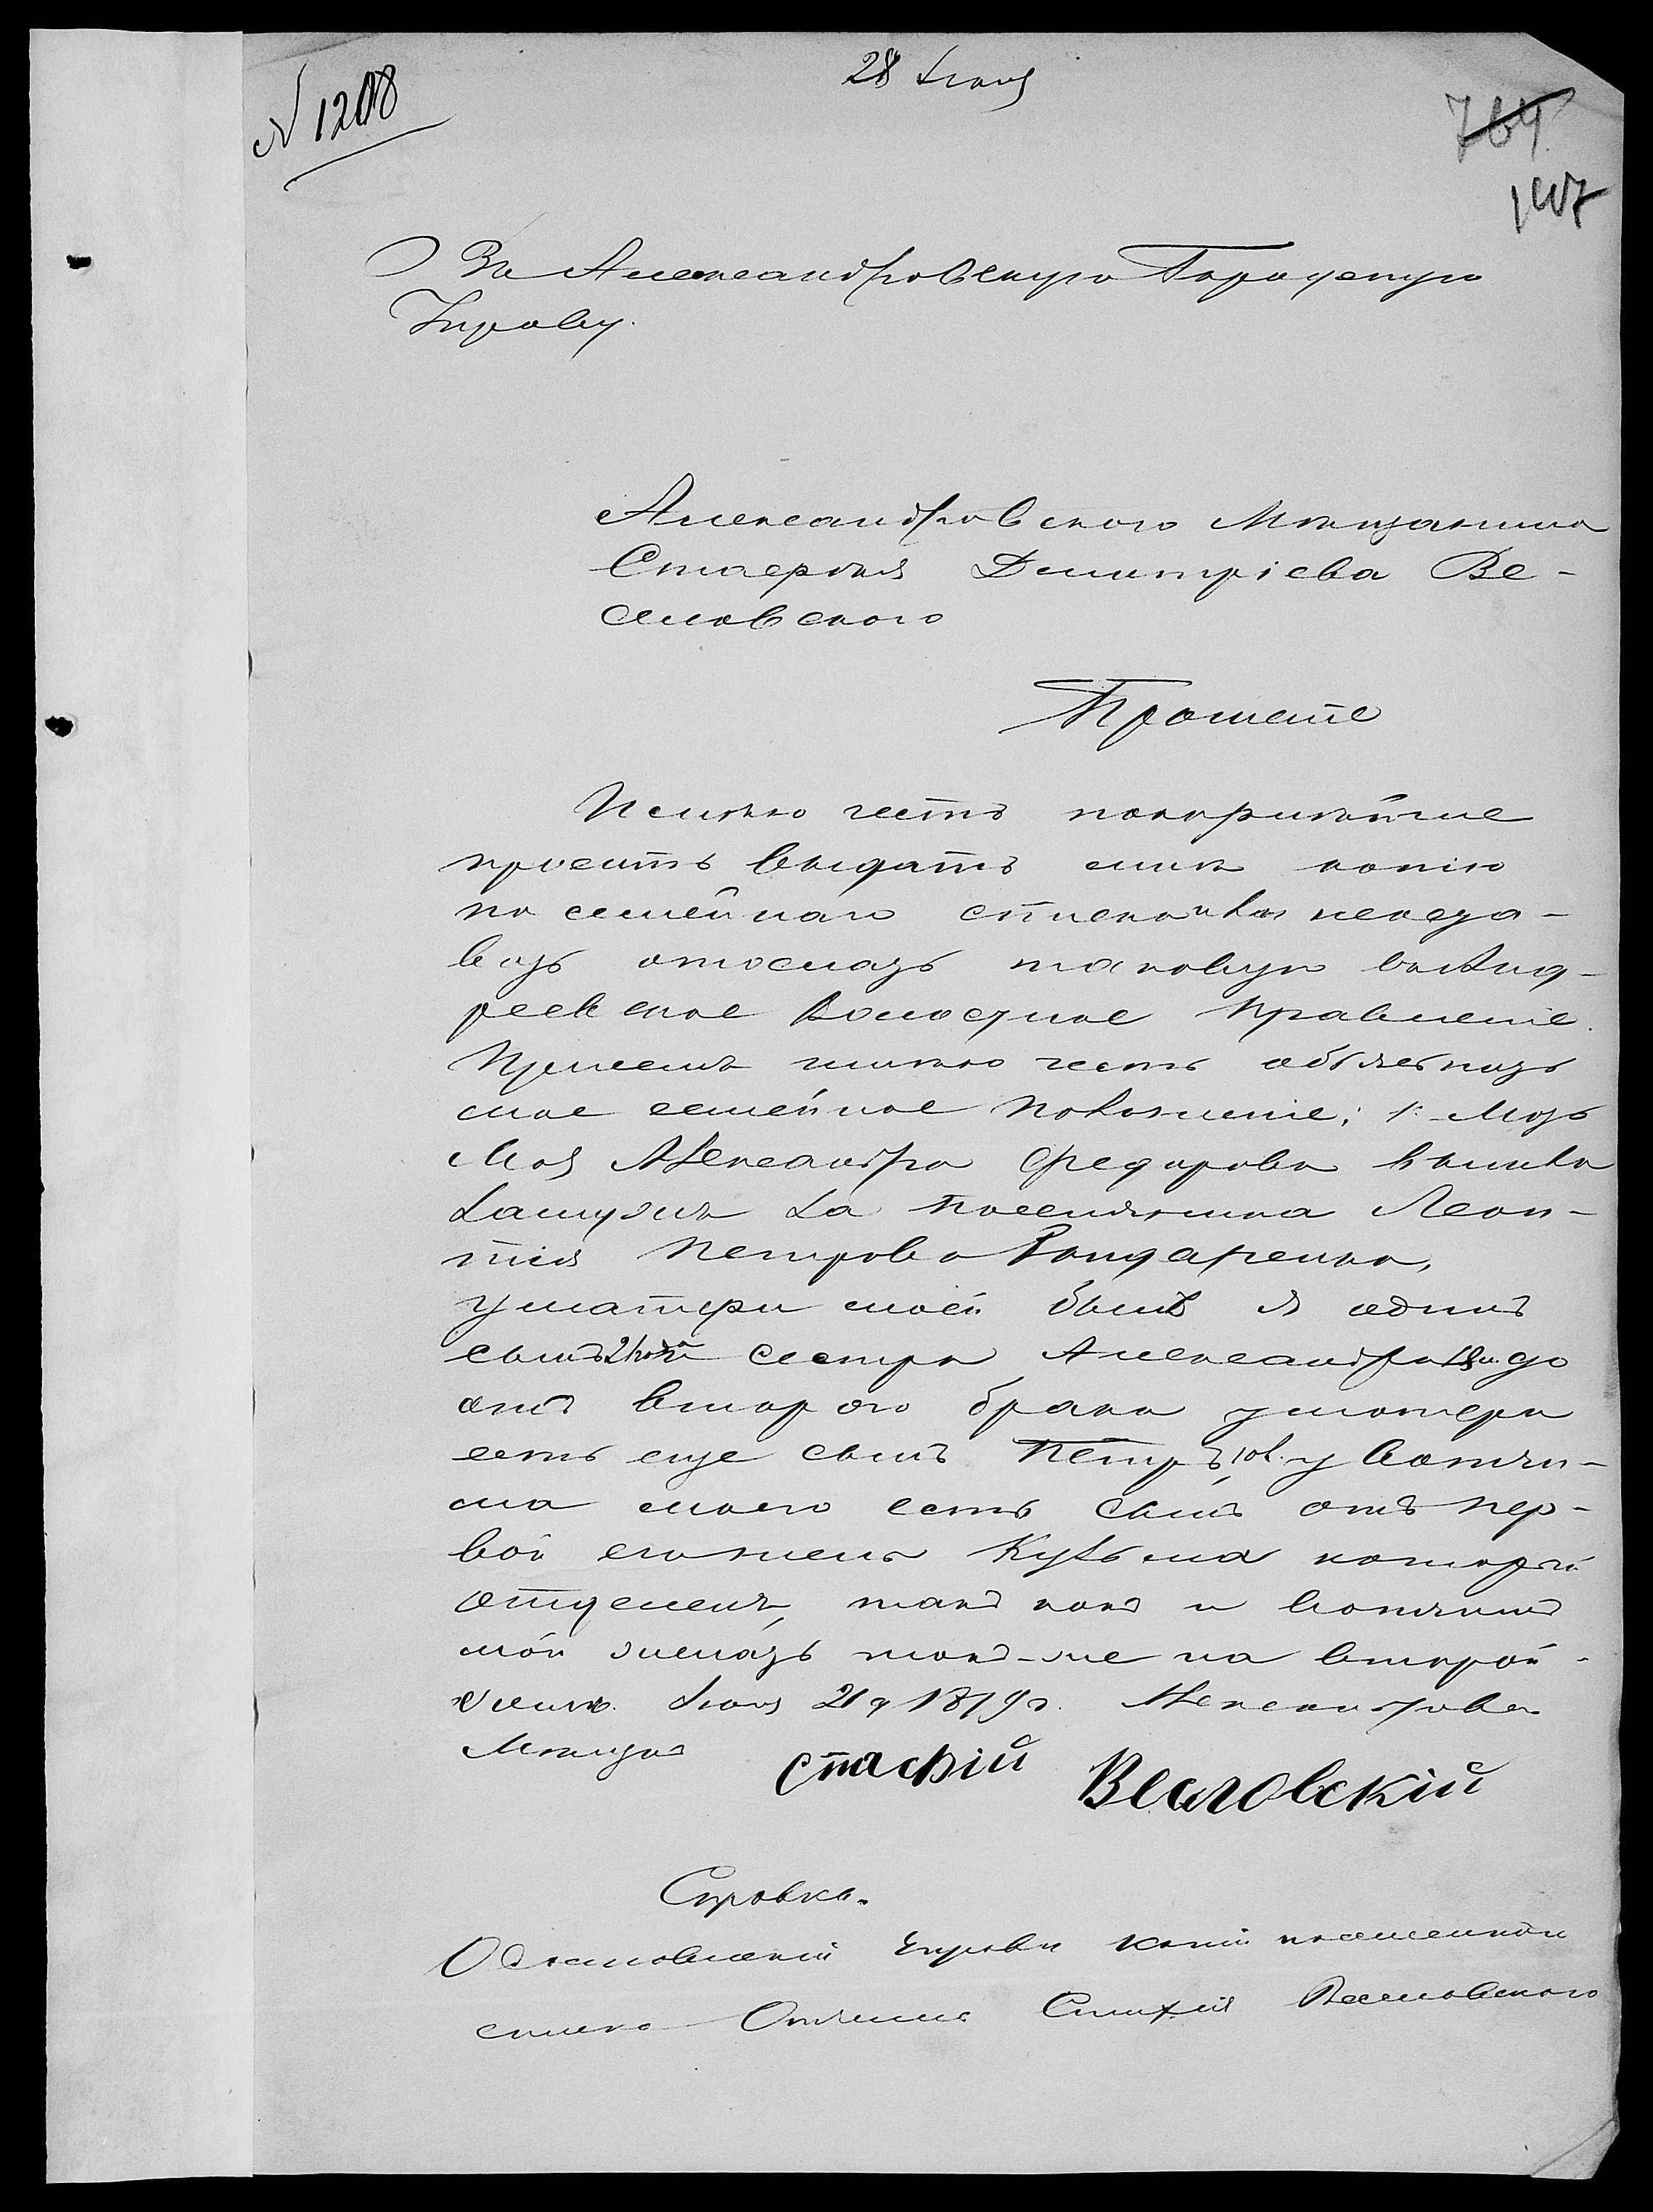 28 Іюня
N 1208
764
147
Въ Александровскую Городскую
Управу.
Александровскаго Мѣщанина
Стасѣия Дмитріева Ве-
словского
Прошеніе
Имѣю честь покорнѣйше
просить выдать мнѣ копію
по семейнаго списка или
вать отослать таковую въ Анд-
реевское Волостное Правленіе.
Присемъ имѣю честь объяснить
мое семейное положеніе: 1. Мать
Моя Александра Федорова вышла
замужъ за поселянина Леон-
тія Петрова Бондаренка,
у матери моей былъ я одинъ
сынъ 21 года сестра Александра 18 л. до
отъ второго брака у матери
есть еще сынъ Петръ 10 л. у вотчи-
ма моего есть сынъ отъ пер-
вой его жены Кузьма который
отделенъ, такъ какъ и вотчимъ
мой женатъ тоже на второй
женѣ. Іюня 21 д 1879 г. Александровск
Мѣщан
Стасфій Весловскій
Справка.
Управы копіи посемейной
списка Отчима Весловского